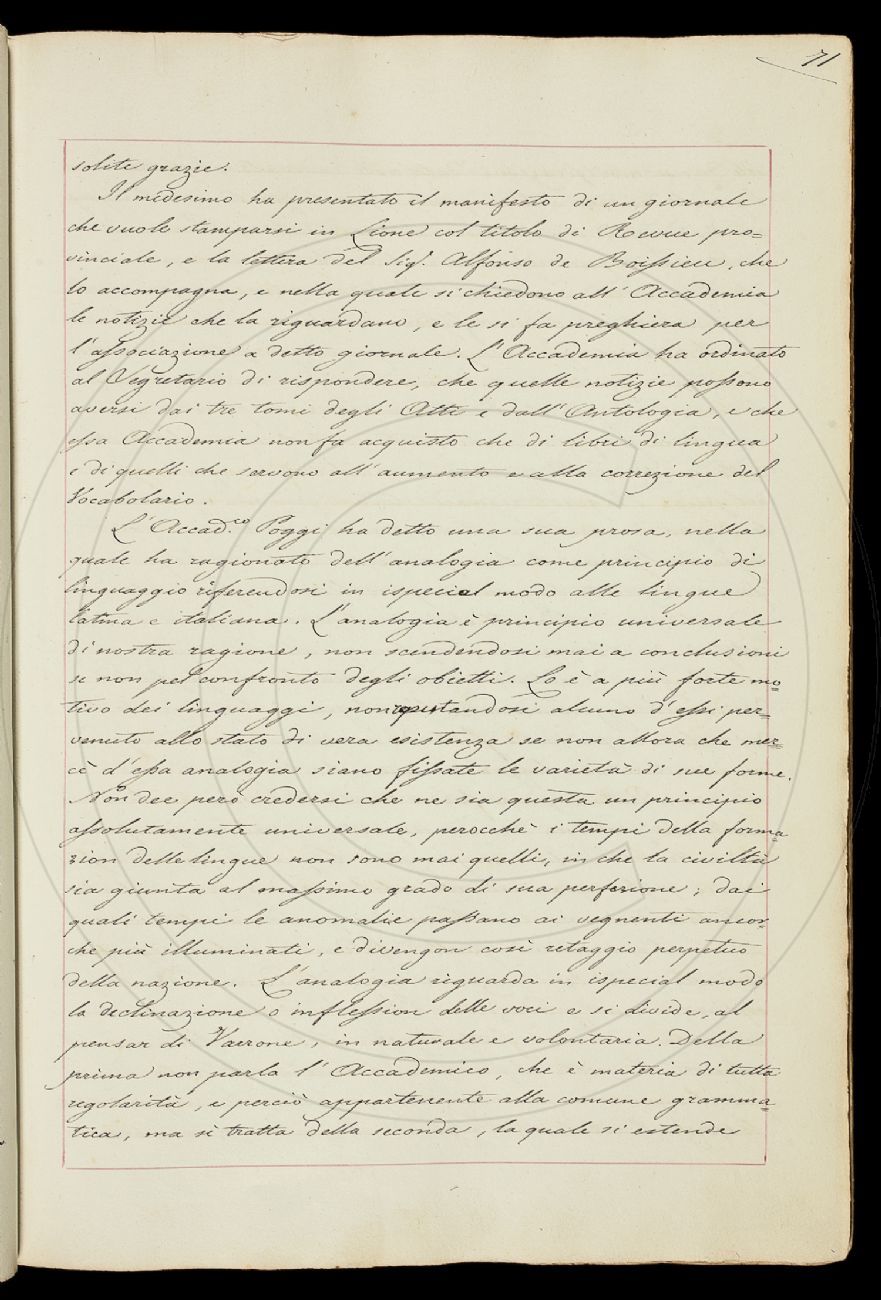 71
solite grazie.
Il medesimo ha presentato il manifesto di un giornale
che vuole stamparsi in Lione col titolo di Revue pro=
vinciale, e la lettera del Sig.r Alfonso de Boissieu, che
lo accompagna, e nella quale si chiedono all'Accademia
le notizie che la riguardano, e le si fa preghiera per
l'associazione a detto giornale. L'Accademia ha ordinato
al Segretario di rispondere, che quelle notizie possono
aversi dai tre tomi degli Atti e dall'Antologia, e che
essa Accademia non fa acquisto che di libri di lingua
e di quelli che servono all'aumento e alla correzione del
Vocabolario.
L'Accad.co Poggi ha detto una sua prosa, nella
quale ha ragionato dell'analogia come principio di
linguaggio riferendosi in ispecial modo alle lingue
latina e italiana. L'analogia è principio universale
di nostra ragione, non scendendosi mai a conclusioni
se non pel confronto degli obietti. Lo è a più forte mo=
tivo dei linguaggi, non reputandosi alcuno d'essi per=
venuto allo stato di vera esistenza se non allora che mer=
cè d'essa analogia siano fissate le varietà di sue forme.
Non dee però credersi che ne sia questa un principio
assolutamente universale, perocchè i tempi della forma=
zion delle lingue non sono mai quelli, in che la civiltà
sia giunta al massimo grado di sua perfezione; dai
quali tempi le anomalie passano ai vegnenti ancor=
chè più illuminati, e divengon così retaggio perpetuo
della nazione. L'analogia riguarda in ispecial modo
la declinazione o inflession delle voci e si divide, al
pensar di Varrone, in naturale e volontaria. Della
prima non parla l'Accademico, che è materia di tutta
regolarità, e perciò appartenente alla comune gramma=
tica, ma si tratta della seconda, la quale si estende